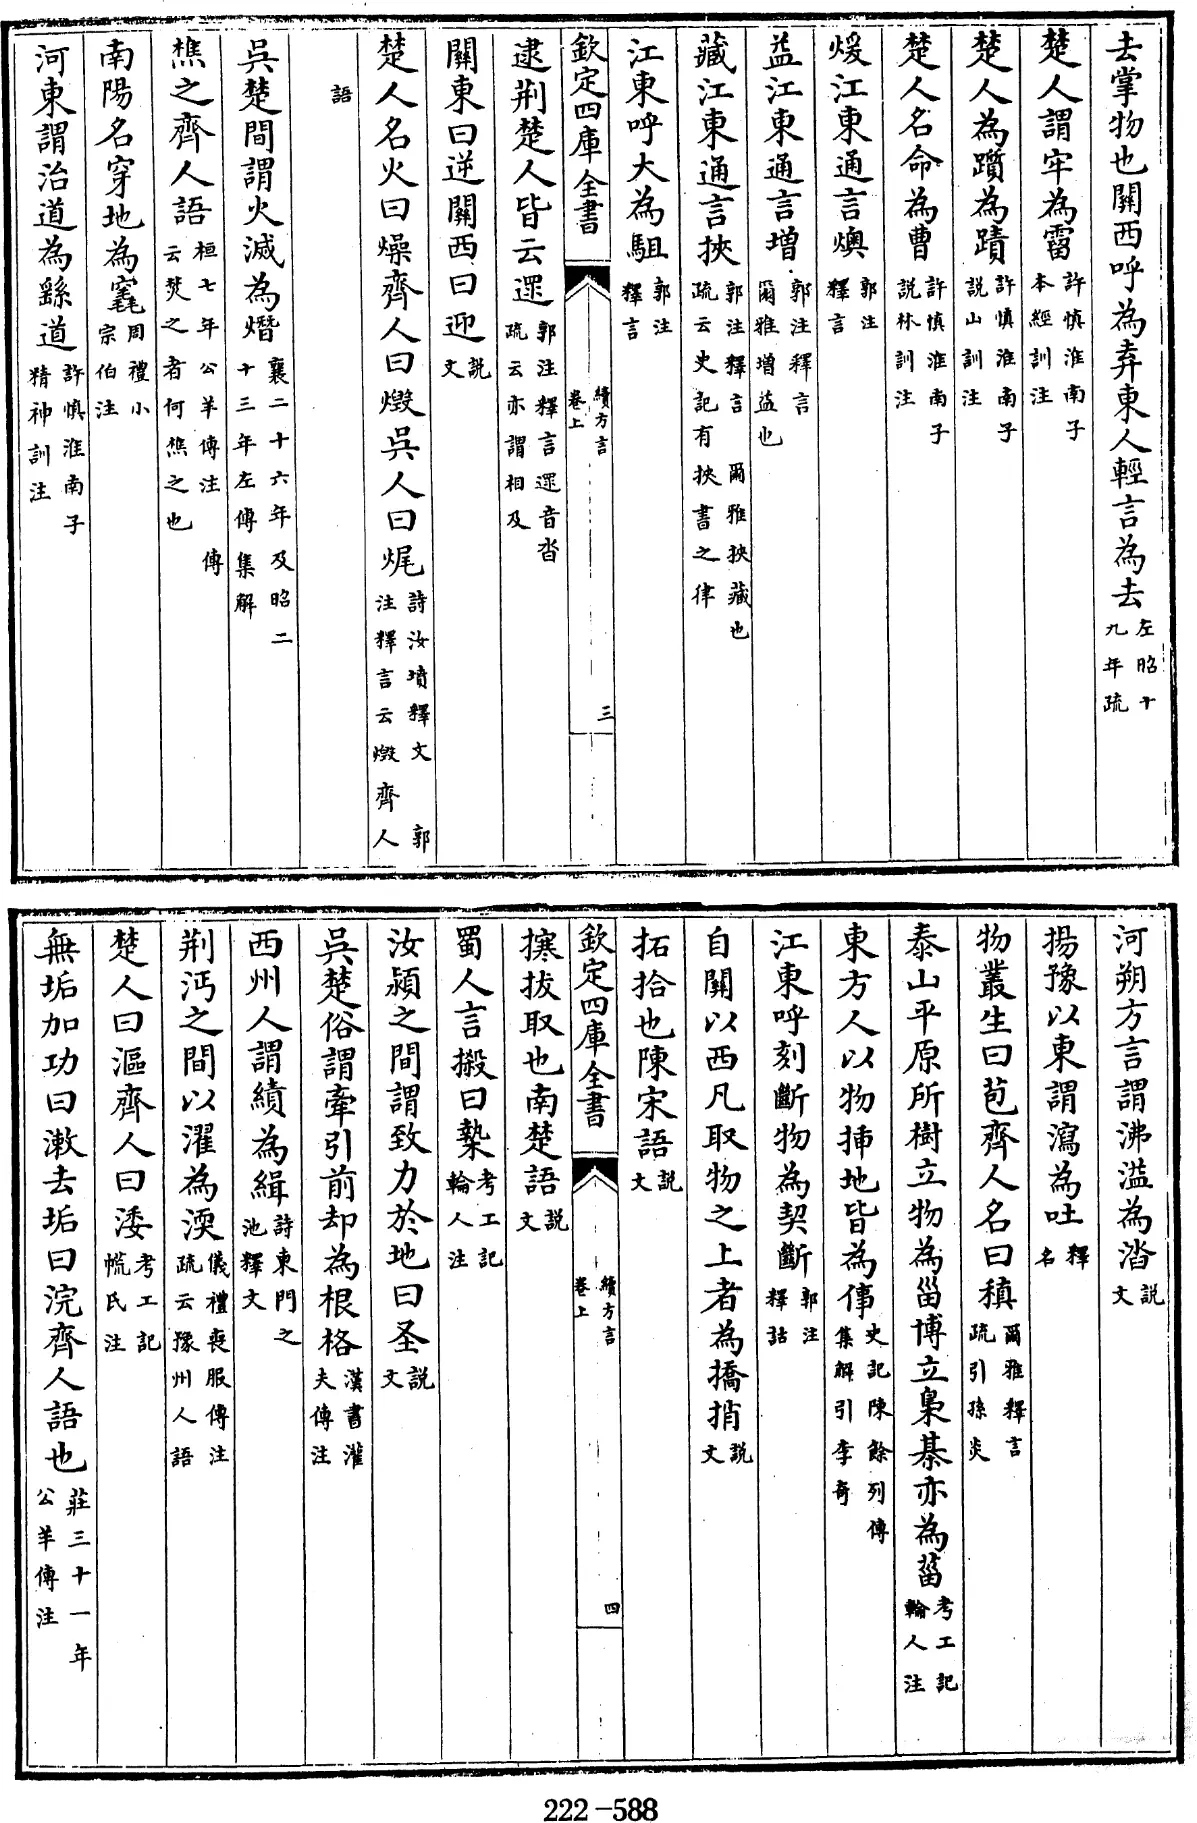 去掌物也關西呼為弆東人輕言為去左昭十九年疏
楚人謂牢為霤許慎淮南子本經訓注
楚人為躓為蹟許慎淮南子説山訓注
楚人名命為曹許慎淮南子説林訓注
煖江東通言燠郭注釋言
益江東通言增郭注釋言爾雅增益也
藏江東通言挾郭注釋言 爾雅挾藏也疏云史記有挾書之律
江東呼大為駔郭注釋言
欽定四庫全書
續方言卷上
三
逮荆楚人皆云遝郭注釋言遝音沓疏云亦謂相及
關東曰逆關西曰迎説文
楚人名火曰燥齊人曰燬吳人曰㷄詩汝墳釋文 郭注釋言云燬齊人
語
吳楚間謂火滅為熸襄二十六年及昭二十三年左傳集解
樵之齊人語桓七年公羊傳注 傳云焚之者何樵之也
南陽名穿地為竁周禮小宗伯注
河東謂治道為繇道許慎淮南子精神訓注
河朔方言謂沸溢為涾説文
揚豫以東謂瀉為吐釋名
物叢生曰苞齊人名曰稹爾雅釋言疏引孫炎
泰山平原所樹立物為甾博立梟棊亦為菑考工記輪人注
東方人以物揷地皆為倳史記陳餘列傳集解引李奇
江東呼刻斷物為契斷郭注釋詁
自關以西凡取物之上者為撟捎説文
拓拾也陳宋語説文
欽定四庫全書
續方言卷上
四
攓拔取也南楚語説文
蜀人言搬曰槷考工記輪人注
汝潁之間謂致力於地曰圣説文
吳楚俗謂牽引前却為根格漢書灌夫傳注
西州人謂績為緝詩東門之池釋文
荆沔之間以濯為渜儀禮喪服傳注疏云豫州人語
楚人曰漚齊人曰涹考工記㡛氏注
無垢加功曰漱去垢曰浣齊人語也莊三十一年公羊傳注
222-588